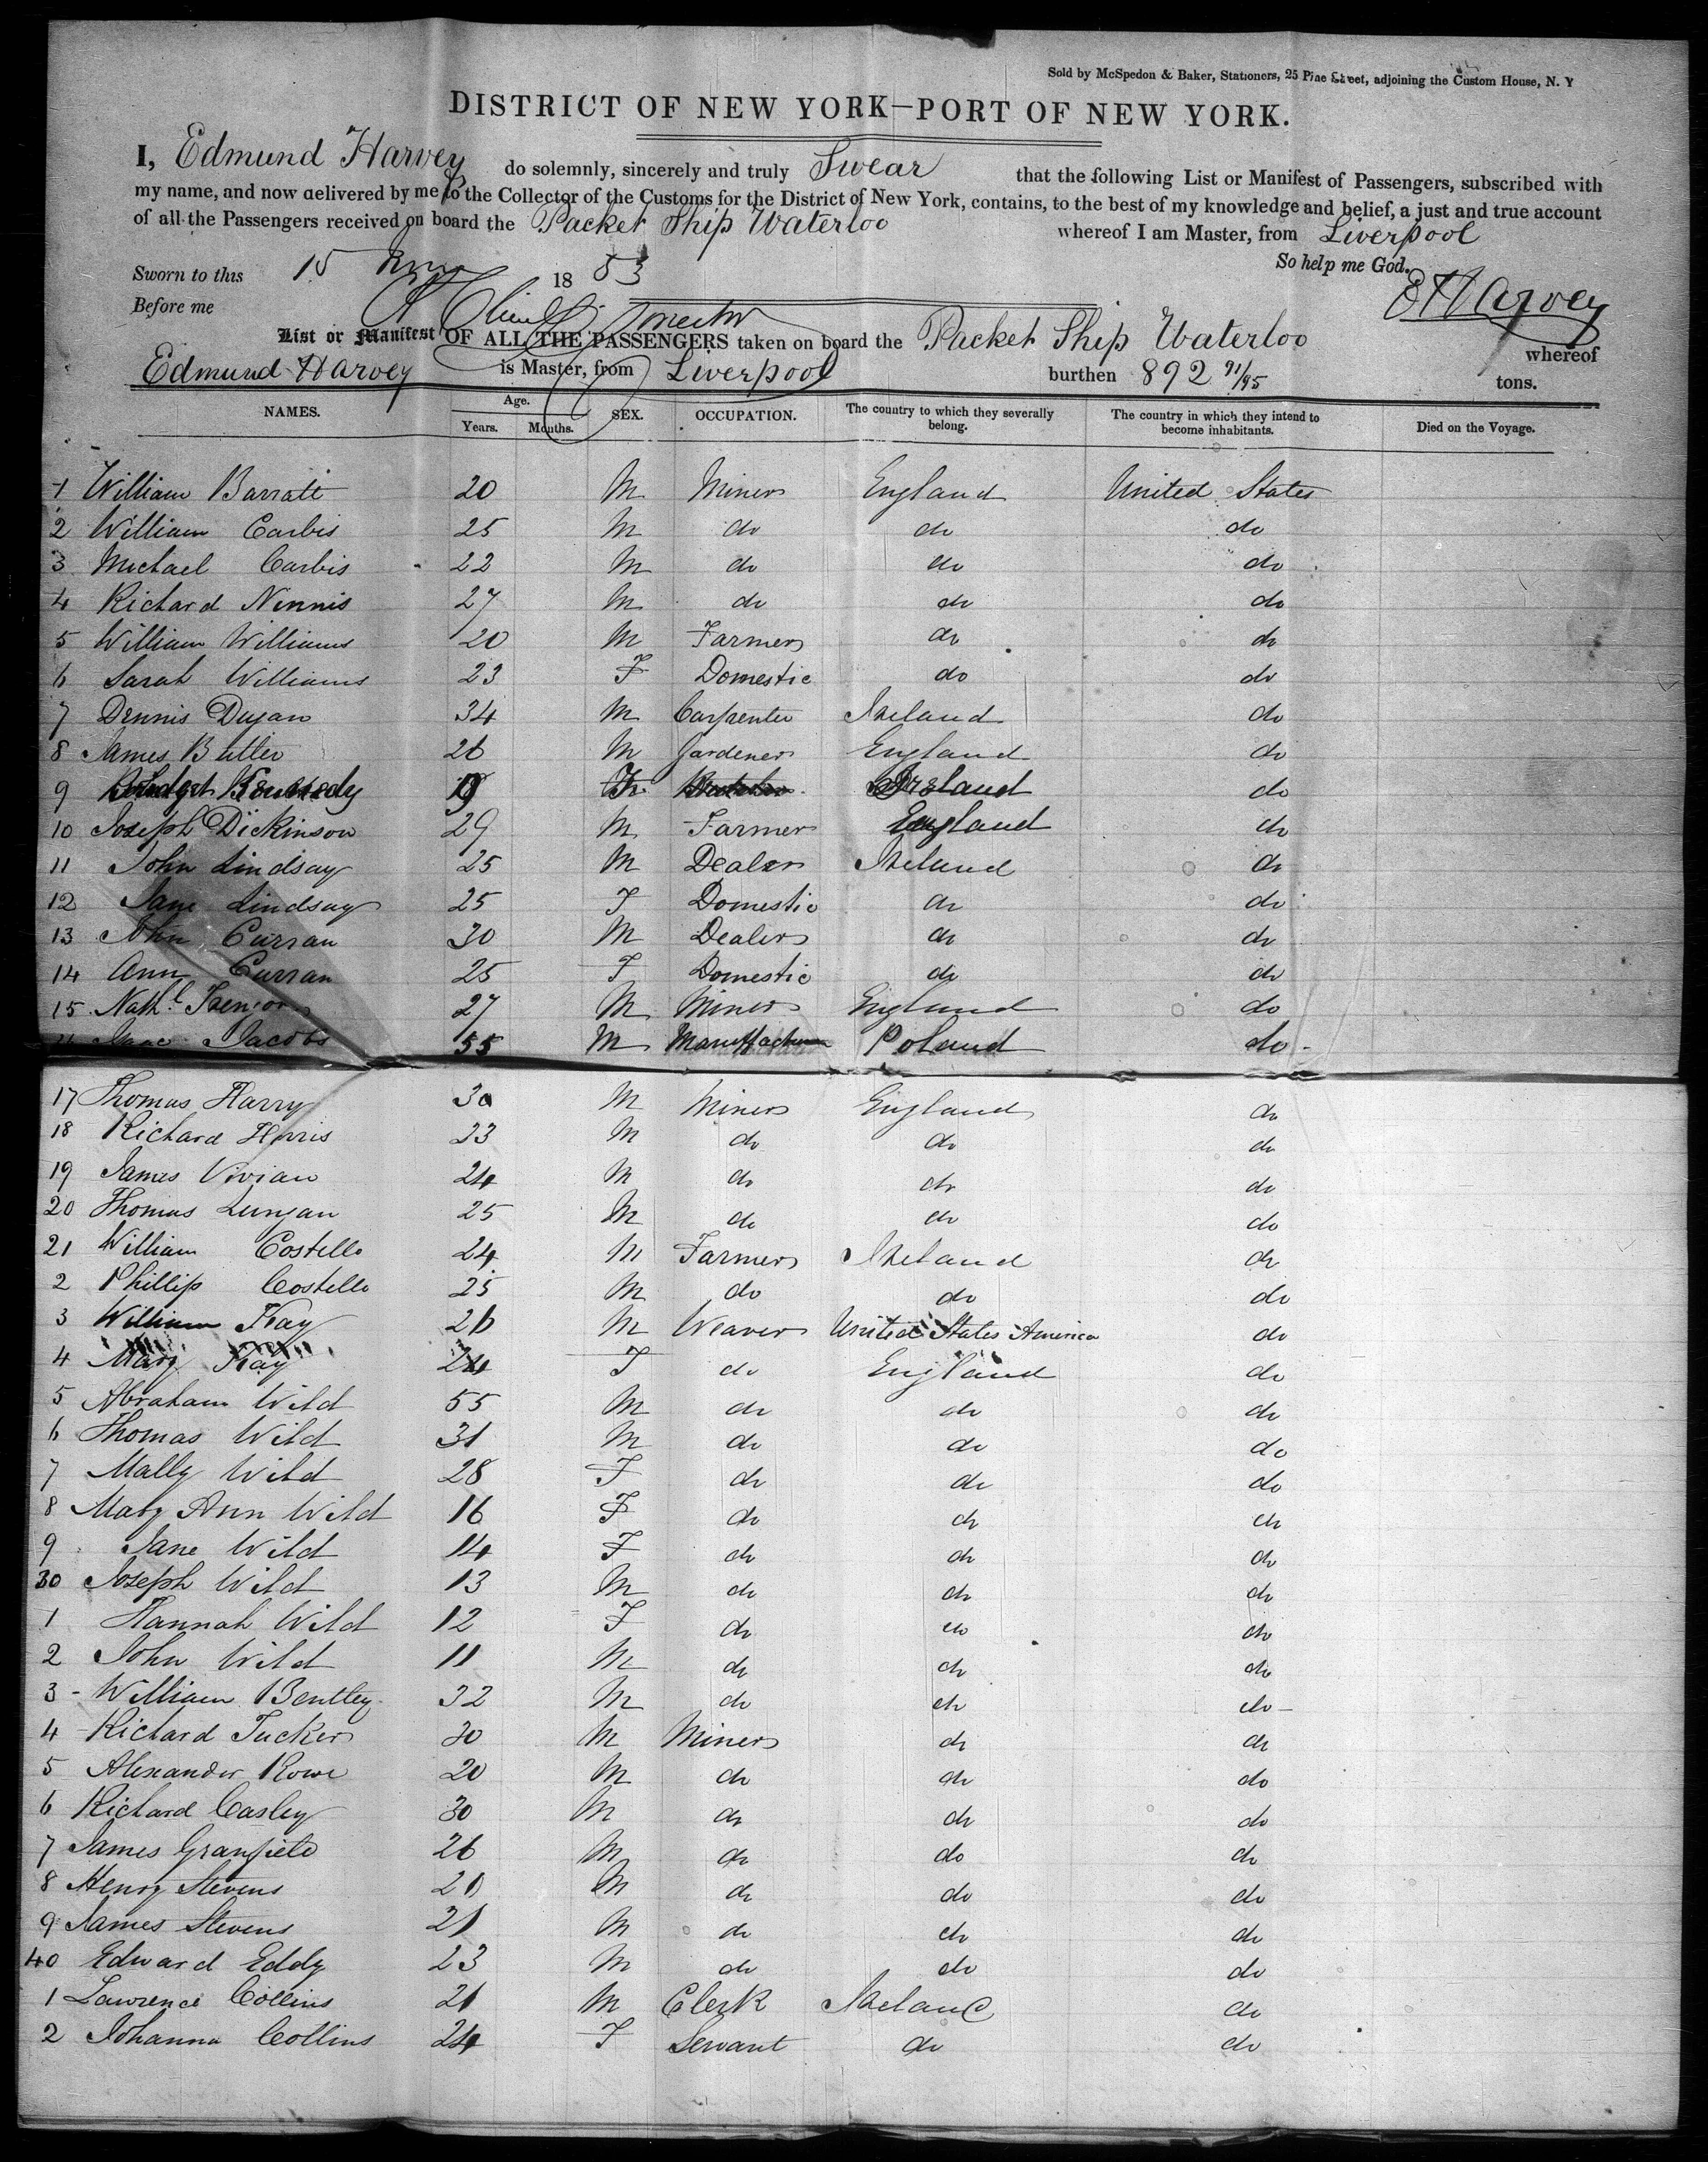 Sold by McSpedon & Baker, Stationers, 25 Pine Street, adjoining the Custom House, N. Y
DISTRICT OF NEW YORK—PORT OF NEW YORK.
I, Edmund Harvey do solemnly, sincerely and truly Swear that the following List or Manifest of Passengers, subscribed with
my name, and now delivered by me to the Collector of the Customs for the District of New York, contains, to the best of my knowledge and belief, a just and true account
of all the Passengers received on board the Packet Ship Waterloo whereof I am Master, from Liverpool
So help me God.
Sworn to this 15 1853
Before me
E Harvey
List or Manifest OF ALL THE PASSENGERS taken on board the Packet Ship Waterloo whereof
Edmund Harvey is Master, from Liverpool burthen 892 91/95 tons.
NAMES. Age. Years. Months. SEX. OCCUPATION. The country to which they severally belong. The country in which they intend to become inhabitants. Died on the Voyage.
1 William Barratt 20 M Miner England United States
2 William Carbis 25 M do do do
3 Michael Carbis 22 M do do do
4 Richard Ninnis 27 M do do do
5 William Williams 20 M Farmer do do
6 Sarah Williams 23 F Domestic do do
7 Dennis Dugan 34 M Carpenter Ireland do
8 James Butler 26 M Gardener England do
9 Bridget Kennedy F Ireland do
10 Joseph Dickinson 29 M Farmer England do
11 John Lindsay 25 M Dealer Ireland do
12 Jane Lindsay 25 F Domestic do do
13 John Curran 30 M Dealer do do
14 Ann Curran 25 F Domestic do do
15 Nathl 27 M Miner England do
Isaac Jacobs 55 M Poland do
17 Thomas Harry 30 M Miner England do
18 Richard Harris 23 M do do do
19 James Vivian 24 M do do do
20 Thomas 25 M do do do
21 William Costello 24 M Farmer Ireland do
2 Phillip Costello 25 M do do do
3 William Kay 26 M Weaver United States America do
4 Mary Kay 24 F do England do
5 Abraham Wild 55 M do do do
6 Thomas Wild 31 M do do do
7 Mally Wild 28 F do do do
8 Mary Ann Wild 16 F do do do
9 Jane Wild 14 F do do do
30 Joseph Wild 13 M do do do
1 Hannah Wild 12 F do do do
2 John Wild 11 M do do do
3 William Bentley 32 M do do do
4 Richard Tucker 30 M Miner do do
5 Alexander Rowe 20 M do do do
6 Richard Casley 30 M do do do
7 James Granfield 26 M do do do
8 Henry Stevens 20 M do do do
9 James Stevens 21 M do do do
40 Edward Eddy 23 M do do do
1 Lawrence Collins 21 M Clerk Ireland do
2 Johanna Collins 24 F Servant do do